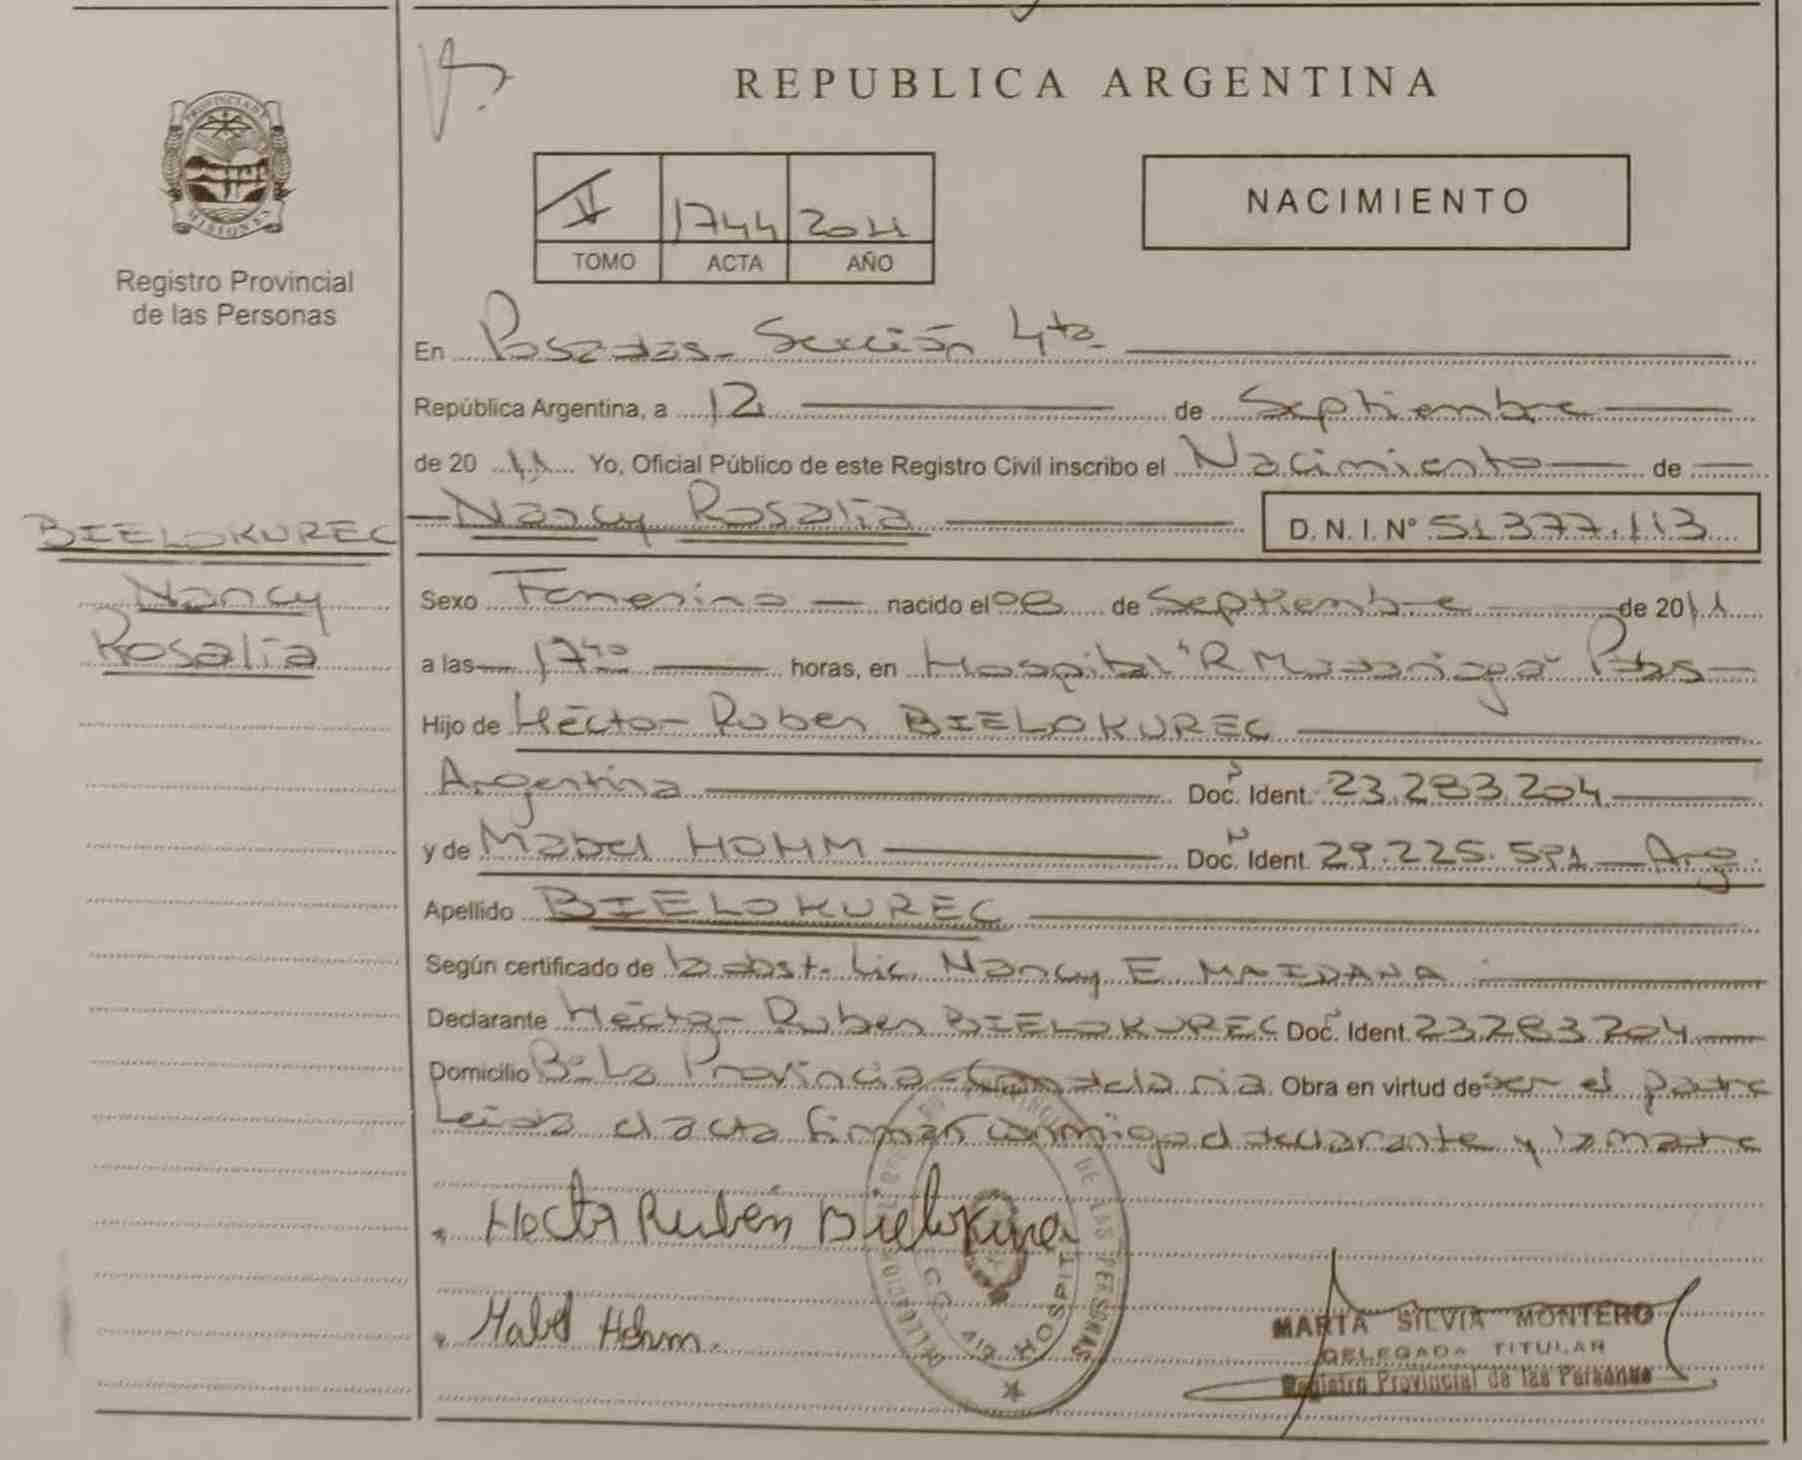 REPUBLICA ARGENTINA
PROVINCIA DE
MISIONES
Registro Provincial
de las Personas
1744 2011
TOMO ACTA AÑO
NACIMIENTO
En Posadas - Sección 4ta
República Argentina, a 12 de Septiembre
de 20 11 Yo, Oficial Público de este Registro Civil inscribo el Nacimiento de
BIELOKUREC
Nancy
Rosalía
Nancy Rosalía D. N. I. Nº 51.377.113
Sexo Femenino nacido el 08 de Septiembre de 2011
a las 17 40 horas, en Hospital "R Madariaga" Pdas
Hijo de Héctor Ruben BIELOKUREC
Argentina Doc. Ident. 23.283.204
y de Mabel HOHM Doc. Ident. 29.225.591 Arg
Apellido BIELOKUREC
Según certificado de la obst. Lic. Nancy E MAIDANA
Declarante Héctor Ruben BIELOKUREC Doc. Ident. 23.283.204
Domicilio Bº La Provincia - Candelaria Obra en virtud de ser el padre
Leída el acta firman conmigo el declarante y la madre
Hector Rubén Bielokurec
Mabel Hohm.
DE LAS PERSONAS
HOSPIT
MARTA SILVIA MONTERO
DELEGADA TITULAR
Registro Provincial de las Personas